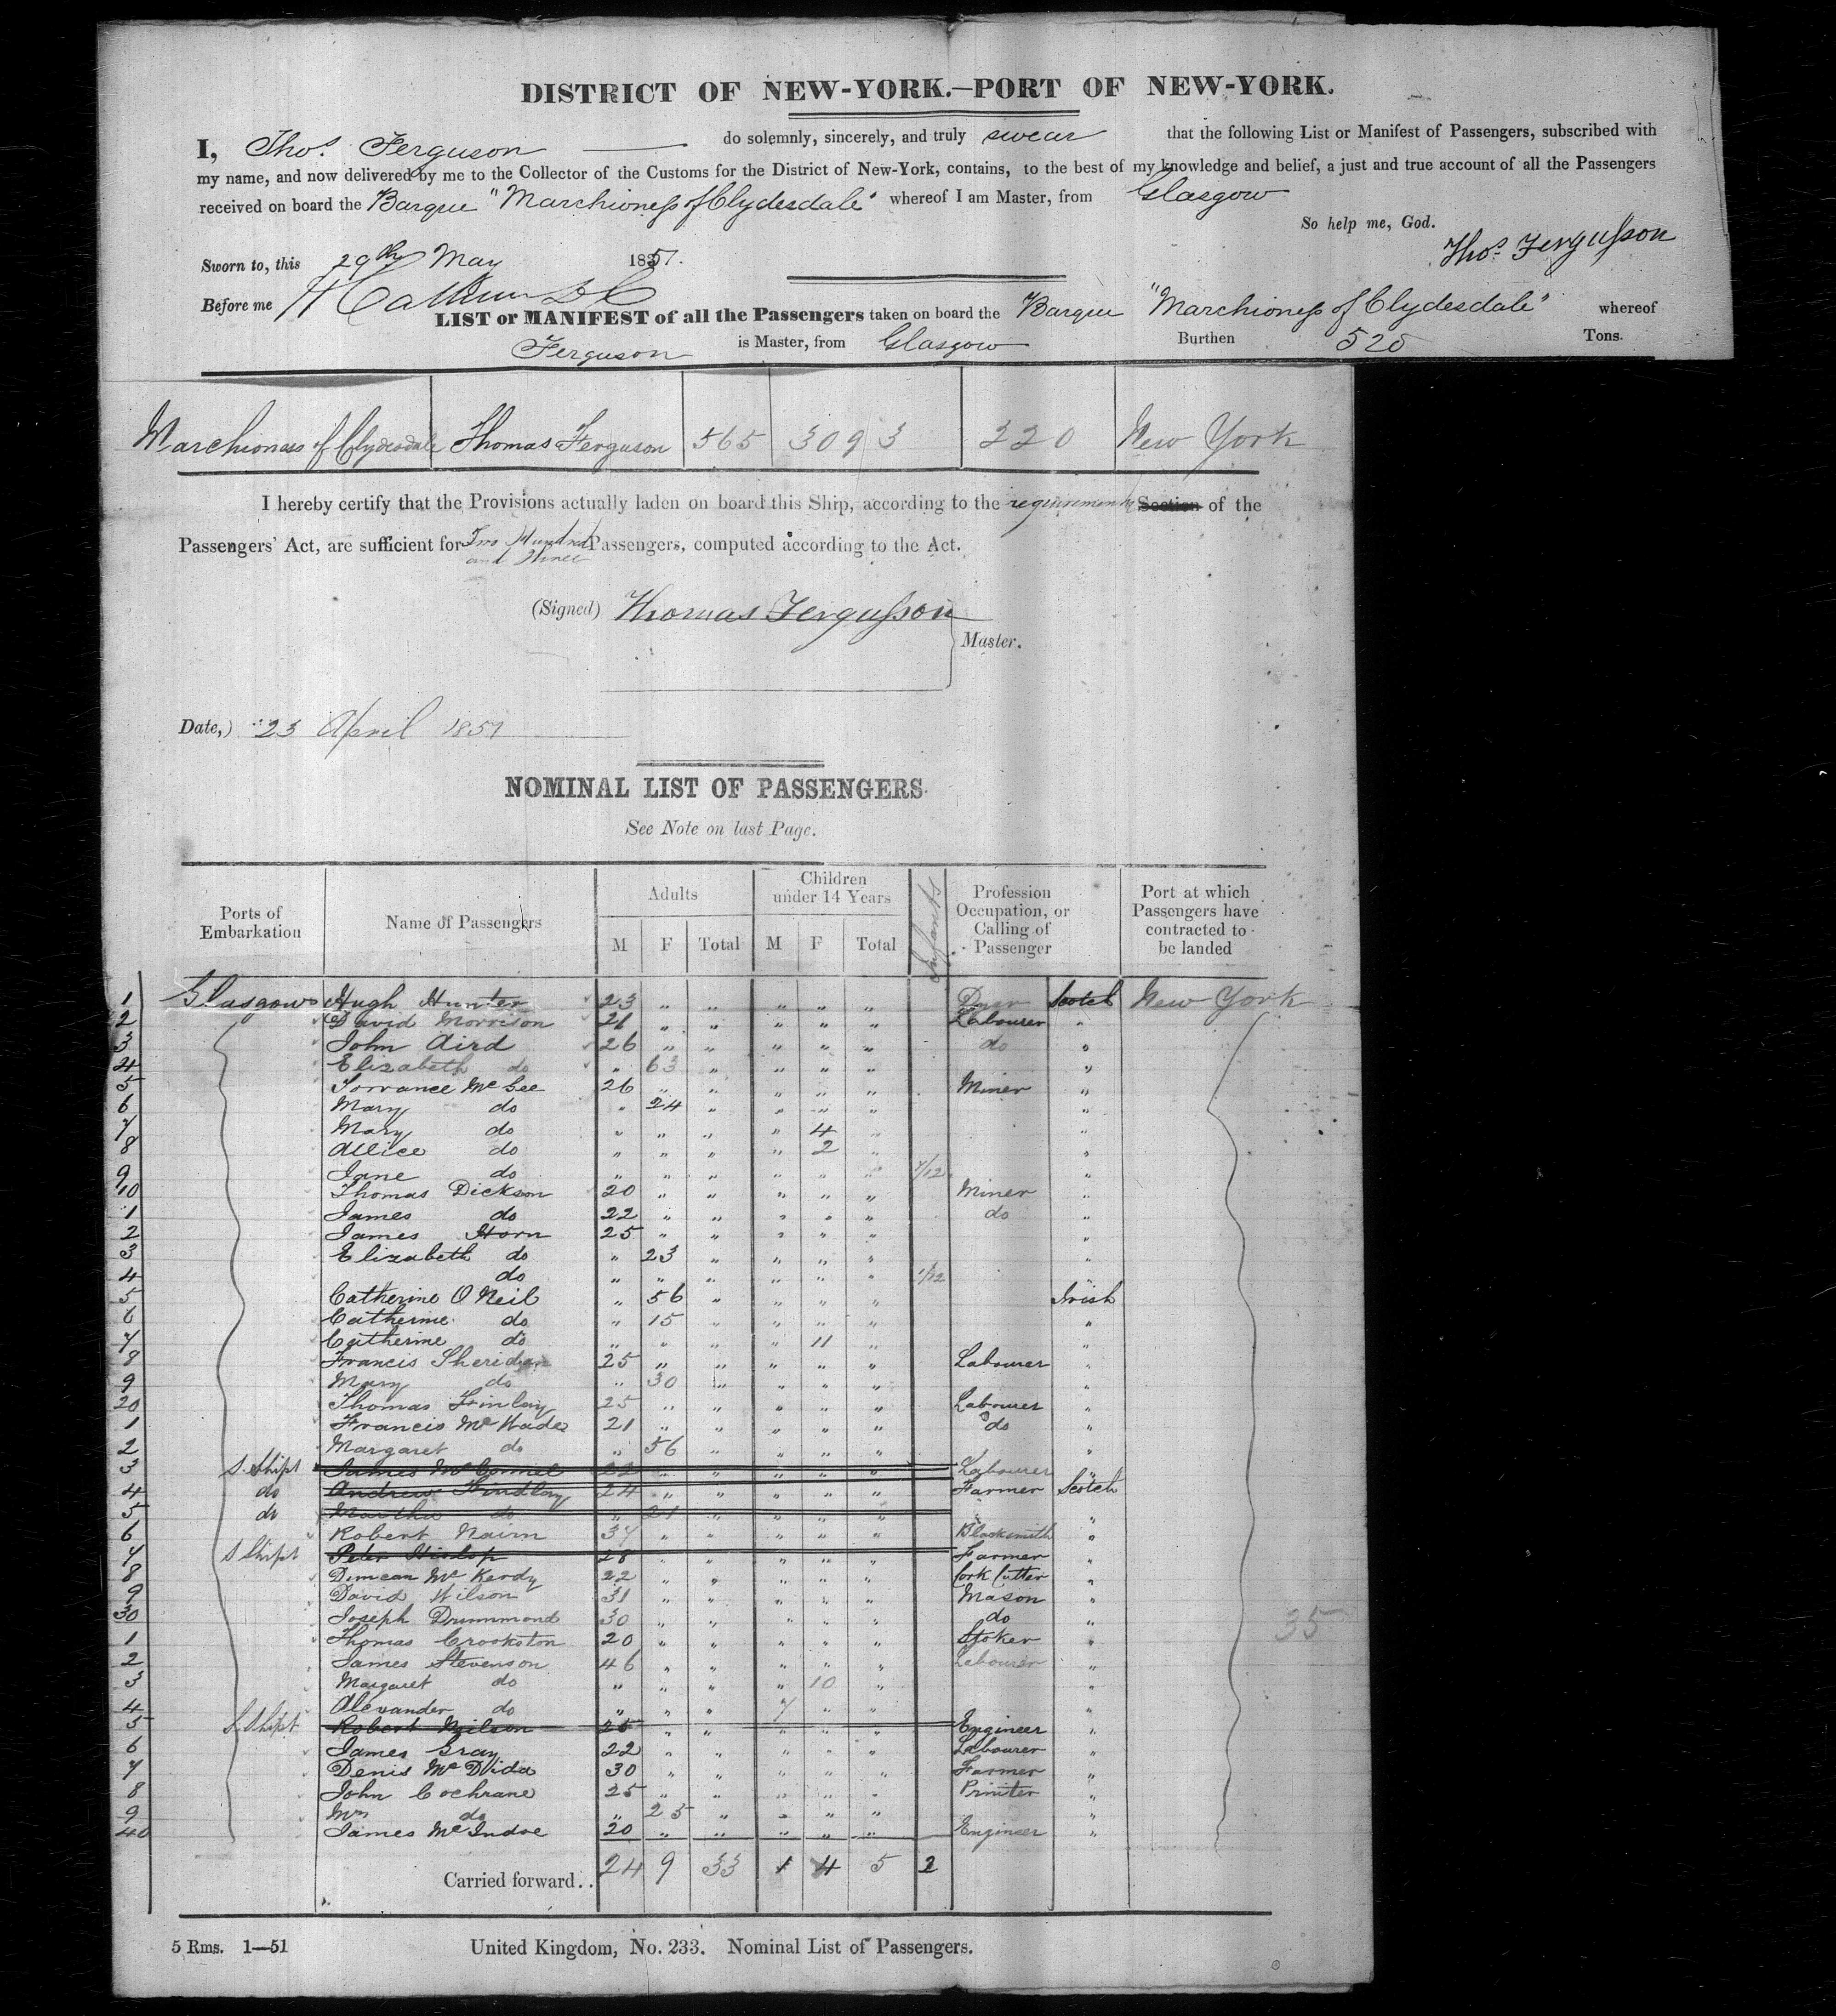 DISTRICT OF NEW-YORK.—PORT OF NEW-YORK.
I, Thos. Ferguson do solemnly, sincerely, and truly swear that the following List or Manifest of Passengers, subscribed with
my name, and now delivered by me to the Collector of the Customs for the District of New-York, contains, to the best of my knowledge and belief, a just and true account of all the Passengers
received on board the Barque "Marchioness of Clydesdale" whereof I am Master, from Glasgow
So help me, God.
Thos. Fergusson
Sworn to, this 29th May 1857.
Before me
LIST or MANIFEST of all the Passengers taken on board the Barque "Marchioness of Clydesdale" whereof
Ferguson is Master, from Glasgow Burthen 520 Tons.
Marchioness of Clydesdale Thomas Ferguson 565 3093 220 New York
I hereby certify that the Provisions actually laden on board this Ship, according to the requirements Section of the
Passengers' Act, are sufficient for Two Hundred and three Passengers, computed according to the Act.
(Signed) Thomas Fergusson
Master.
Date,) 23 April 1857
NOMINAL LIST OF PASSENGERS.
See Note on last Page.
Ports of Embarkation Name of Passengers Adults M F Total Children under 14 Years M F Total Infants Profession Occupation, or Calling of Passenger Port at which Passengers have contracted to be landed
1 Glasgow Hugh Hunter 23 " " " " " Scotch New York
2 David Morrison 21 " " " " " Labourer "
3 John Aird 26 " " " " " do "
4 Elizabeth do " 63 " " " " "
5 Torrance McGee 26 " " " " " Miner "
6 Mary do " 24 " " " " "
7 Mary do " " " " 4 " "
8 Allice do " " " " 2 " "
9 Jane do " " " " " " 7/12 "
10 Thomas Dickson 20 " " " " " Miner "
1 James do 22 " " " " " do "
2 James Horn 25 " " " " " "
3 Elizabeth do " 23 " " " " "
4 do " " " " " " 1/12
5 Catherine O Neil " 56 " " " " Irish
6 Catherine do " 15 " " " " "
7 Catherine do " " " " 11 " "
8 Francis Sheridan 25 " " " " " Labourer "
9 Mary do " 30 " " " " "
20 Thomas Finlay 25 " " " " " Labourer "
1 Francis McWade 21 " " " " " do "
2 Margaret do " 56 " " " " "
3 S. Shipt James McConnel 22 " " " " " Labourer "
4 do Andrew Findlay 24 " " " " " Farmer Scotch
5 do Martha do " 21 " " " " "
6 Robert Nairn 37 " " " " " Blacksmith "
7 S Shipt Peter Hislop 28 " " " " " Farmer "
8 Duncan McKerdy 22 " " " " " Cork Cutter "
9 David Wilson 31 " " " " " Mason "
30 Joseph Drummond 30 " " " " " do "
1 Thomas Crookston 20 " " " " " Stoker "
2 James Stevenson 46 " " " " " Labourer "
3 Margaret do " " " " 10 " "
4 Alexander do " " " 7 " " "
5 S Shipt Robert Neilson 25 " " " " " Engineer "
6 James Gray 22 " " " " " Labourer "
7 Denis McDida 30 " " " " " Farmer "
8 John Cochrane 25 " " " " " Printer "
9 Mrs do " 25 " " " " "
40 James McIndoe 20 " " " " " Engineer "
35
Carried forward.. 24 9 33 1 4 5 2
5 Rms. 1—51 United Kingdom, No. 233. Nominal List of Passengers.